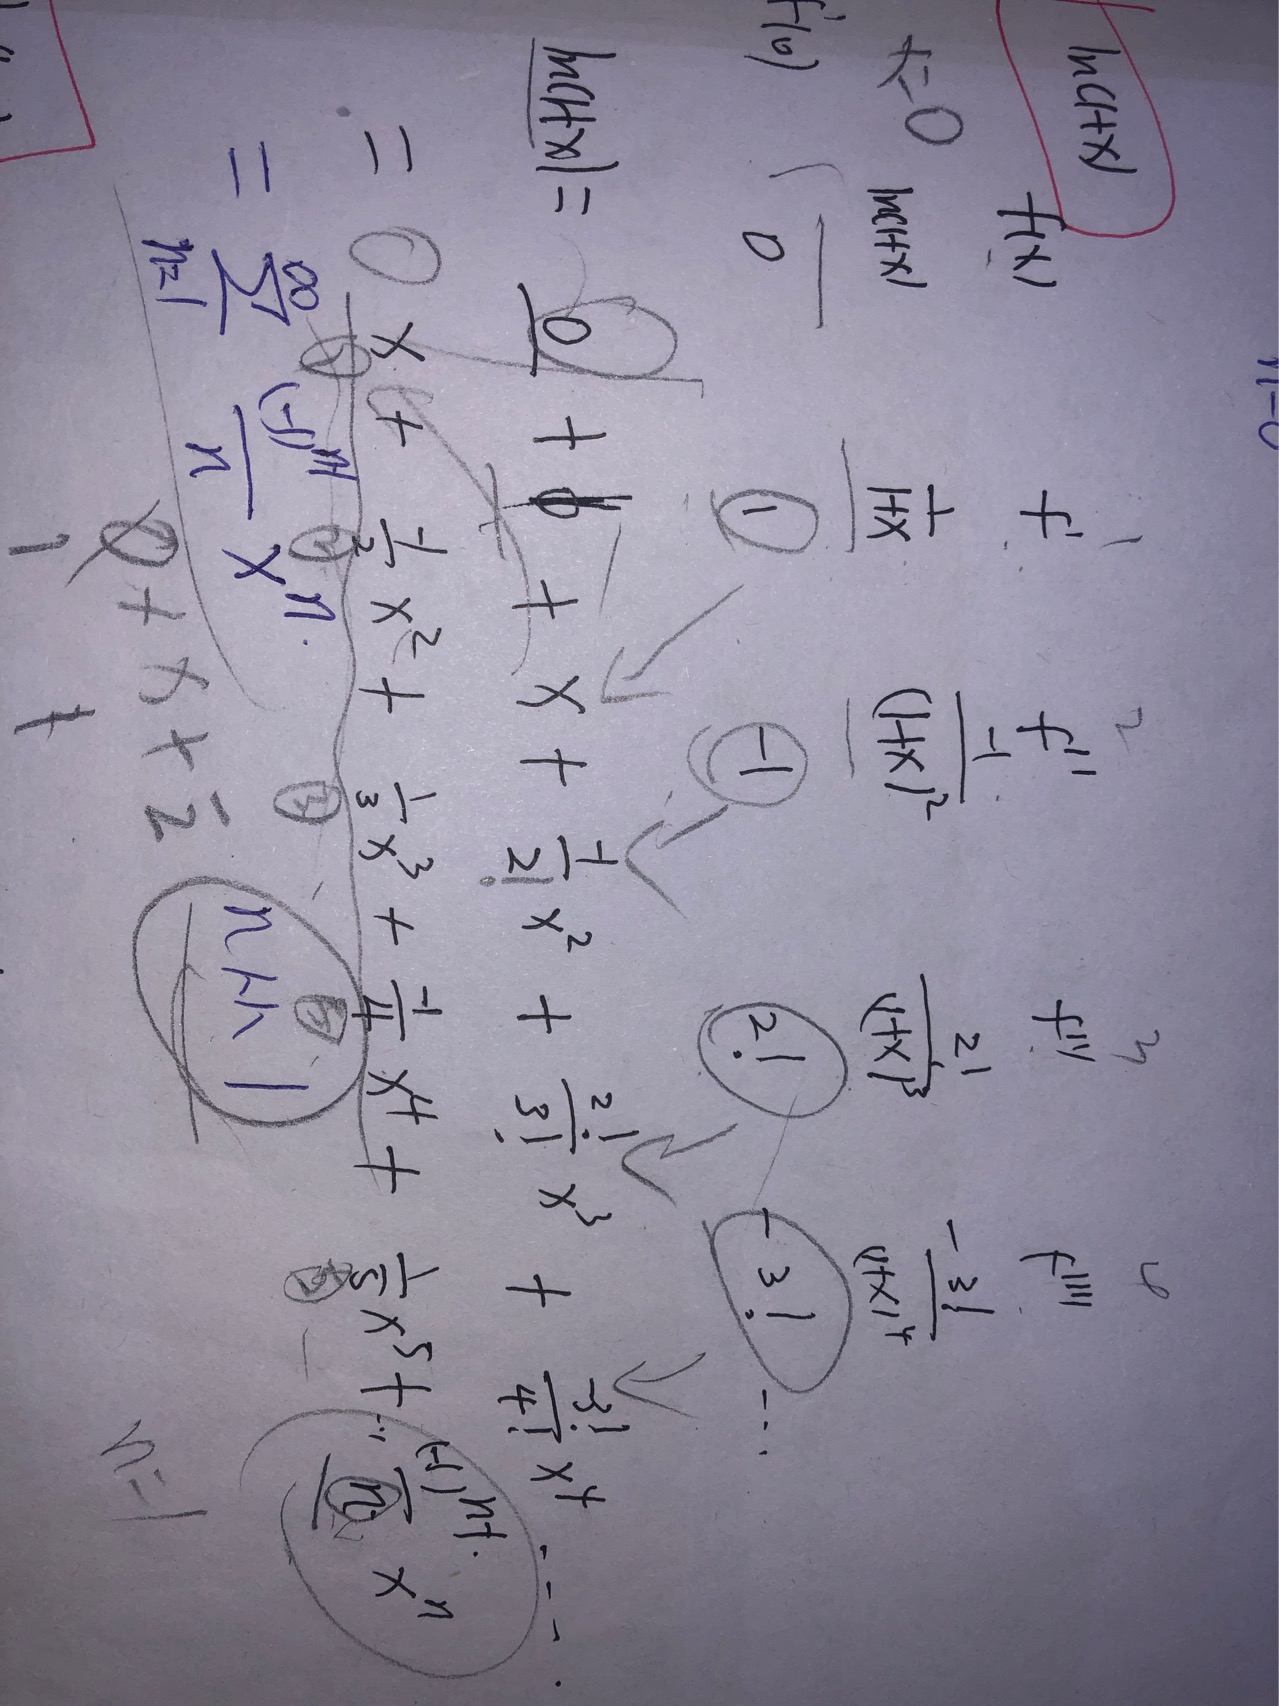 n=0
ln(1+x)
f(x) f' f'' f''' f''''
1 2 3 4
x=0 ln(1+x) 1/(1+x) -1/(1+x)² 2!/(1+x)³ -3!/(1+x)⁴
f'(0) 0 1 -1 2! -3! ...
ln(1+x) = 0 + x + -1/2! x² + 2!/3! x³ + -3!/4! x⁴ ....
= 0 x + -1/2 x² + 1/3 x³ + -1/4 x⁴ + 1/5 x⁵ + ... (-1)ⁿ⁺¹/n xⁿ
= ∞∑n=1 (-1)ⁿ⁺¹/n xⁿ.
n=1
0 + x +
1